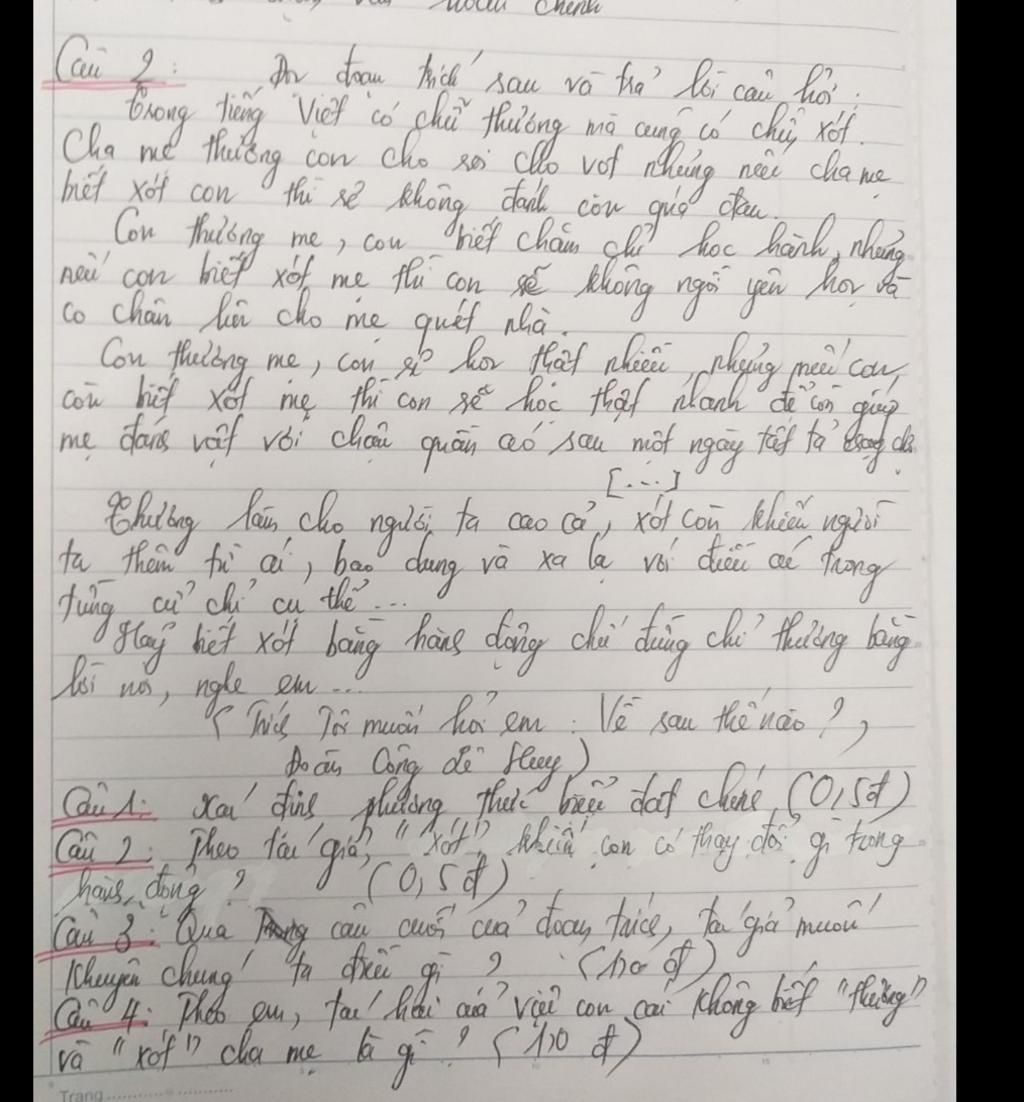 Câu 2: Đọc đoạn trích sau và trả lời câu hỏi:
Trong tiếng Việt có chữ thương mà cũng có chữ xót.
Cha mẹ thương con cho roi cho vọt nhưng nếu cha mẹ
biết xót con thì sẽ không đánh con quá đau.
Con thương mẹ, con biết chăm chỉ học hành, nhưng
nếu con biết xót mẹ thì con sẽ không ngồi yên học và
co chân lên cho mẹ quét nhà.
Con thương mẹ, con sẽ học thật nhiều, nhưng nếu con,
còn biết xót mẹ thì con sẽ học thật nhanh để còn giúp
mẹ đang vật với chậu quần áo sau một ngày tất tả
[...]
Thương làm cho người ta cao cả, xót còn khiến người
ta thêm từ ái, bao dung và xa lạ với điều ác trong
từng cử chỉ cụ thể...
Hãy biết xót bằng hành động chứ đừng chỉ thương bằng
lời nói, nghe em...
(Trích Tôi muốn hỏi em: Về sau thế nào?,
Đoàn Công Lê Huy)
Câu 1: Xác định phương thức biểu đạt chính. (0,5đ)
Câu 2: Theo tác giả, "xót" khiến con có thay đổi gì trong
hành động? (0,5đ)
Câu 3: Qua câu cuối của đoạn trích, tác giả muốn
khuyên chúng ta điều gì? (1,0 đ)
Câu 4: Theo em, tác hại của việc con cái không biết "thương"
và "xót" cha mẹ là gì? (1,0 đ)
Trang